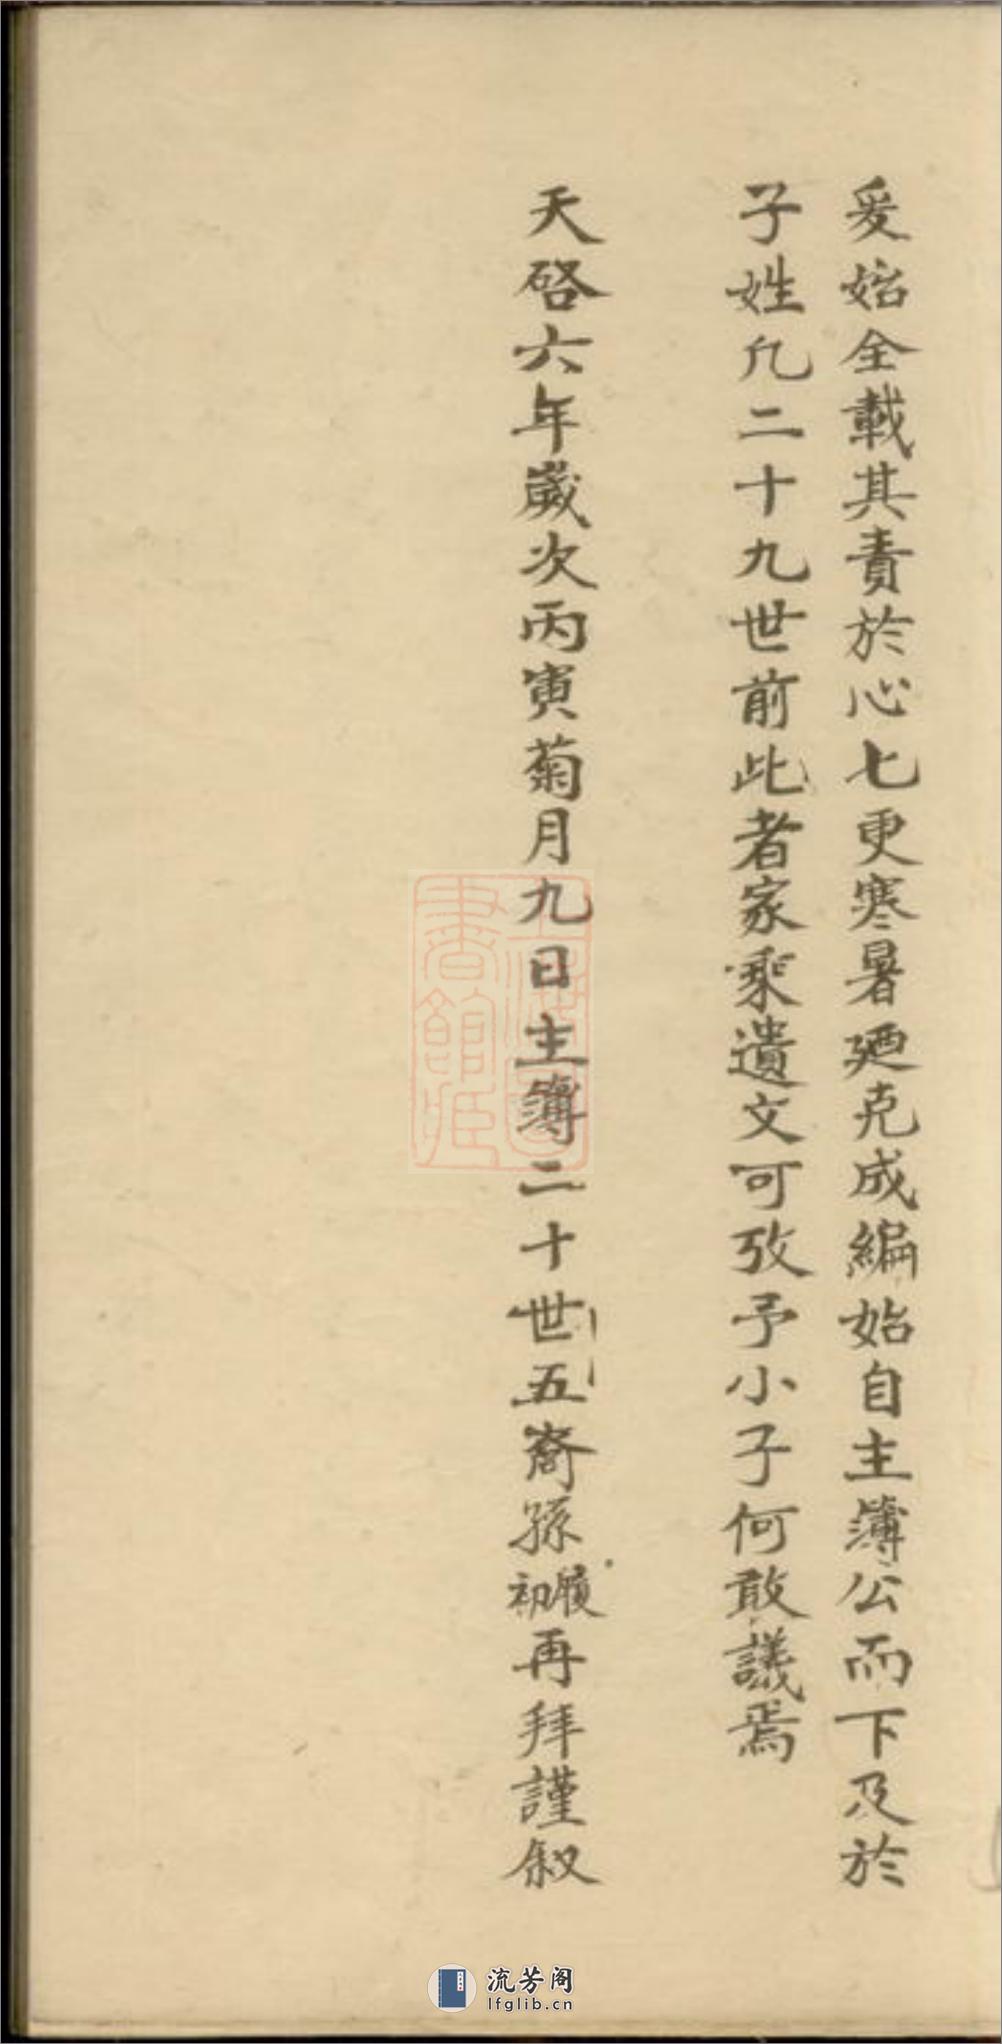 爰始全載其責於心七更寒暑廼克成編始自主簿公而下及於
子姓凢二十九世前此者家乘遺文可攷予小子何敢議焉
天啓六年歲次丙寅菊月九日主簿二十世五裔孫履初再拜謹叙
上海圖書館藏
流芳阁
lfglib.cn